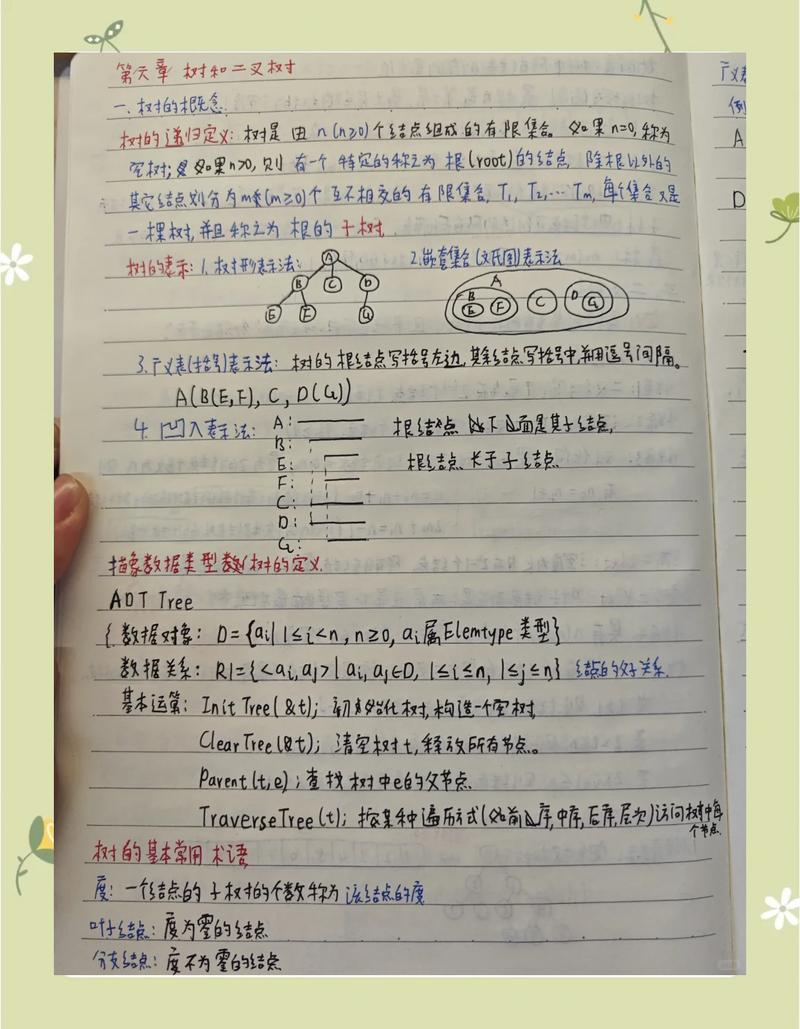 第六章 树和二叉树
一、树的概念
树的递归定义: 树是由n(n≥0)个结点组成的有限集合。如果n=0,称为
空树; 如果n>0,则有一个特定的称之为根(root)的结点,除根以外的
其它结点划分为m(m≥0)个互不相交的有限集合,T₁,T₂,…Tm,每个集合又是
一棵树,并且称之为根的子树.
树的表示: 1.树形表示法: 2.嵌套集合(文氏图)表示法
A
B C D
E F G
A
B E F C D G
3.广义表(括号)表示法: 树的根结点写括号左边,其余结点写括号中,并用逗号间隔。
A(B(E,F),C,D(G))
4.凹入表示法: A: 根结点以下面是其子结点,
B:
E: 根结点长于子结点.
F:
C:
D:
G:
描象数据类型数树的定义.
ADT Tree
{数据对象: D={ai|1≤i<n,n≥0,ai属Elemtype类型}
数据关系: R1={<ai,aj>|ai,aj∈D,1≤i≤n,1≤j≤n} 结点的父子关系.
基本运算: InitTree(&t); 初始化树,构造一个空树
ClearTree(&t); 清空树t,释放所有节点。
Parent(t,e);查找树中e的父节点
TraverseTree(t); 按某种遍历方式(如前序,中序,后序,层次)访问树中每
个节点.
树的基本常用术语
度: 一个结点的子树的个数称为该结点的度
叶子结点: 度为零的结点
分支结点: 度不为零的结点
广义表
例
A
D